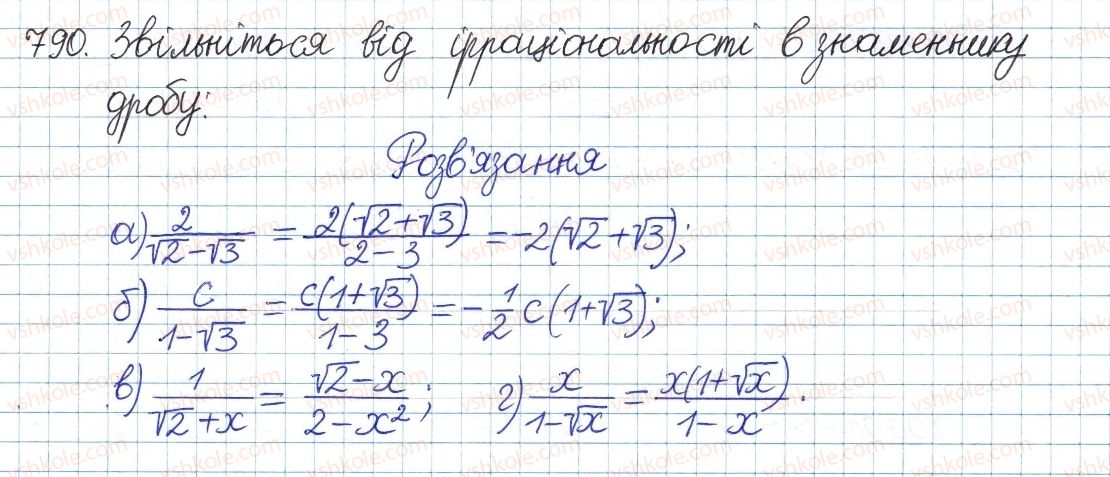 790. Звільніться від ірраціональності в знаменнику
дробу:
Розв'язання
а) 2/(√2-√3) = 2(√2+√3)/(2-3) = -2(√2+√3);
б) c/(1-√3) = c(1+√3)/(1-3) = -1/2 c(1+√3);
в) 1/(√2+x) = (√2-x)/(2-x²); г) x/(1-√x) = x(1+√x)/(1-x).